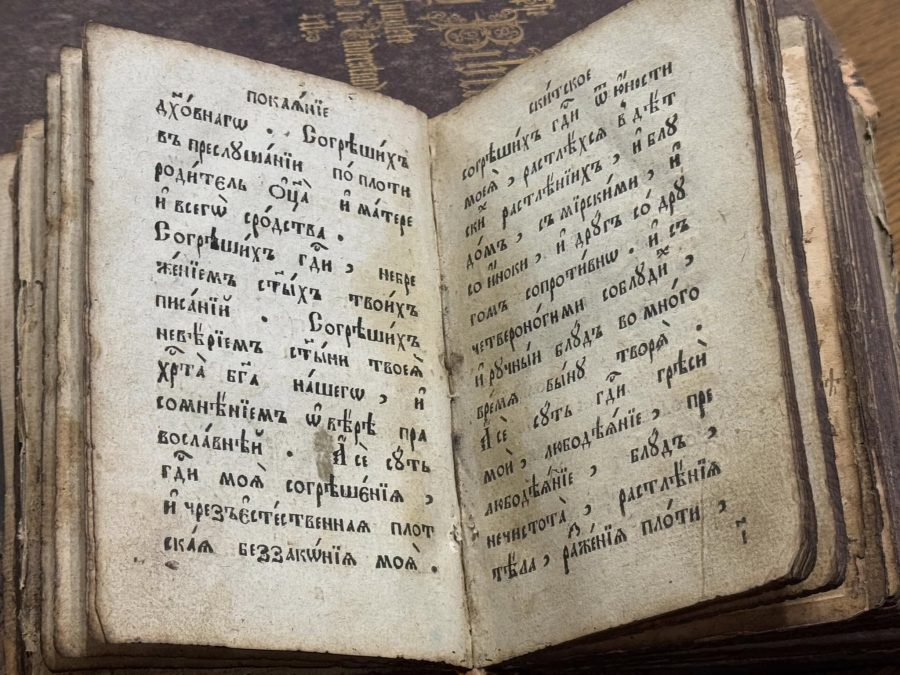 покаѧ́нїе
дх҃о́внагѡ . Согрѣши́хъ
въ преслꙋшанїи по́ плоти
родитель ѻ҆ц҃а̀ и҆ ма́тере
и҆ всегѡ̀ сро́дства .
Согрѣши́хъ гд҃и , небре
же́нїемъ ст҃ы́хъ твои́хъ
писанїй . Согрѣши́хъ
невѣ́рїемъ ст҃ы́ни твоеѧ̀
хр҃та̀ бг҃а на́шегѡ , и҆
сомнѣ́нїемъ ѡ҆ вѣ́рѣ пра
восла́внѣй . А҆ сѐ сꙋть
гд҃и моѧ̀ согрѣше́нїѧ ,
и҆ чрезъесте́ственнаѧ плот
скаѧ беззако́нїѧ моѧ̀ .
ски́тское
согрѣши́хъ гд҃и ѿ ю҆́ности
моеѧ̀ , растлѣ́хсѧ в дѣ́т
ски растлѣ́нїихъ , и҆ блꙋ
до́мъ , съ мїрски́ми , и҆
со и҆́ноки , и҆ дрꙋгъ со́ дрꙋ
гомъ сопроти́внѡ . и҆ съ
четвероно́гими соблꙋди́х ,
и҆ рꙋчны́й блꙋдъ во мно́го
время́ бы́нꙋ творѧ̀ .
А҆ сѐ сꙋть гд҃и грѣсѝ
мой , любодѣѧ́нїе , пре
любодѣѧ́нїе , блꙋ́дъ ,
нечистота̀ , растлѣ́нїѧ
тѣ́ла , раже́нїѧ пло́ти ,